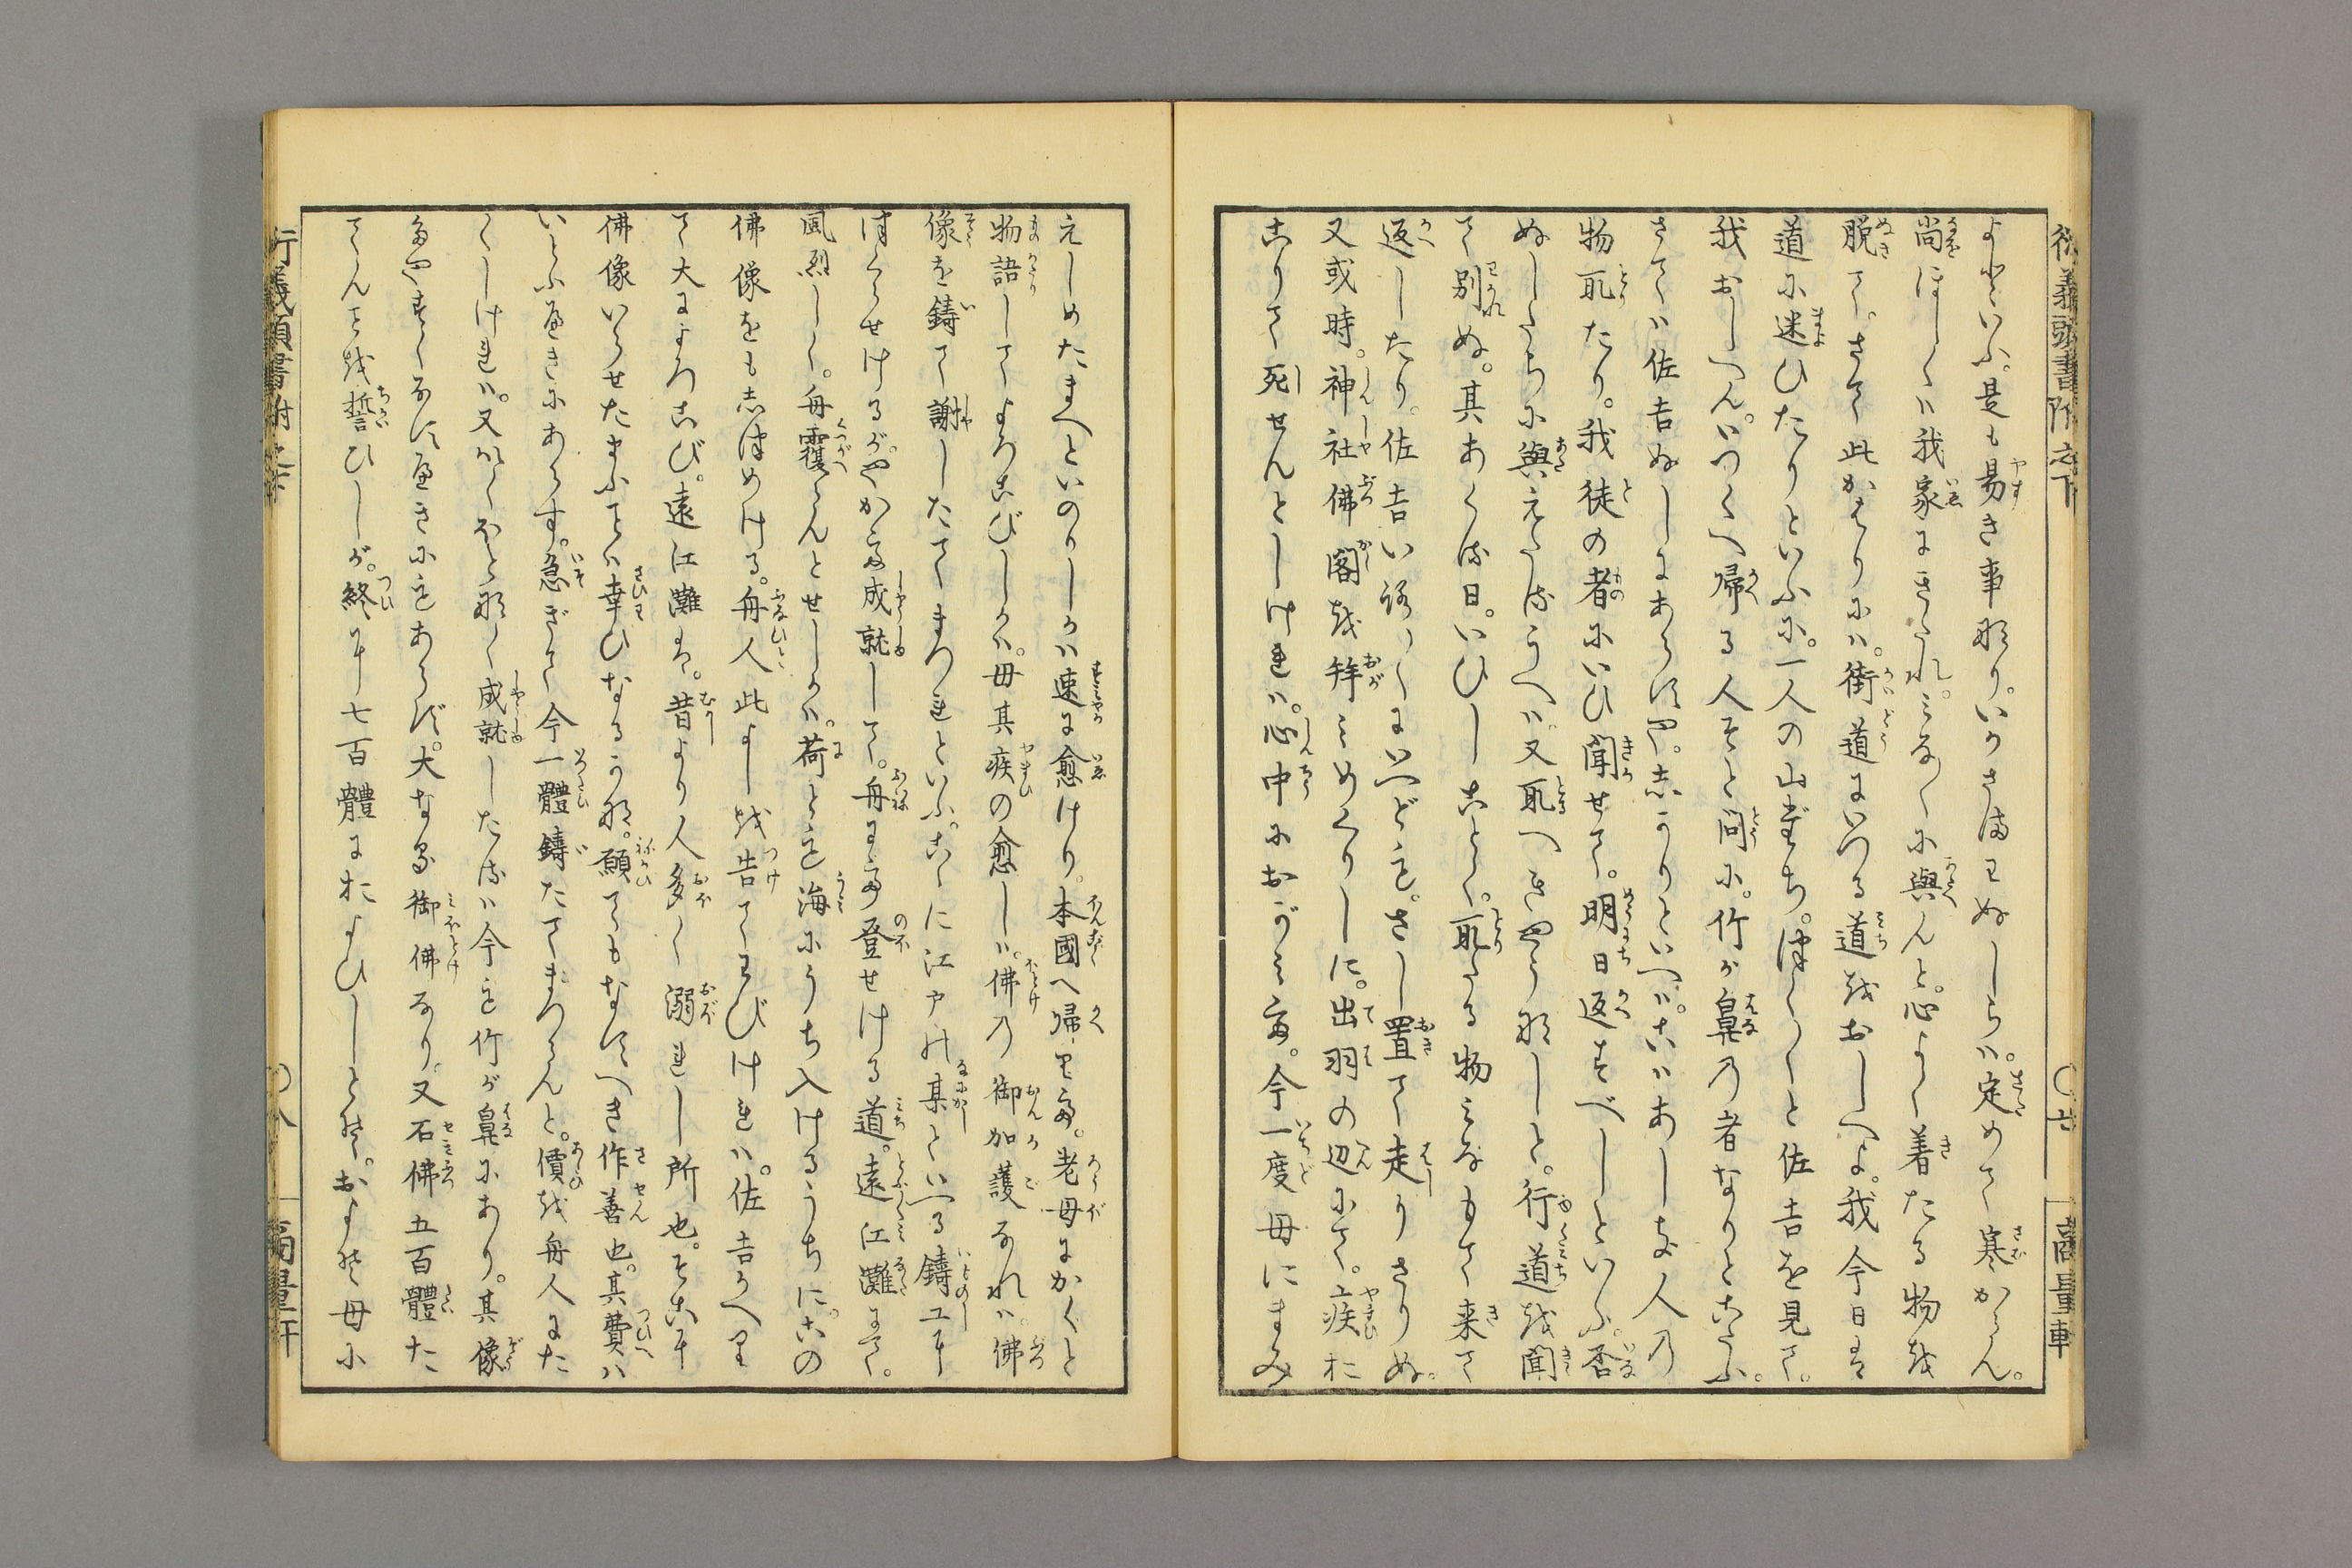 よといふ。是も易き事なり。いかさまわぬしらハ。定めて寒からん。
尚ほしくハ我家にきたれ。みなくに與へんと。心よく着たる物を
脱て。さて此かはりにハ。街道にいつる道をおしへよ。我今日は
道に迷ひたりといふに。一人の山だち。つく〳〵と佐吉を見て。
我おしへん。いつくへ帰る人そと問に。竹が鼻乃者なりとこたふ。
さてハ佐吉ぬしにあらすや。しかりといへハ。こハあしき人乃
物取たり。我徒の者にいひ聞せて。明日返すべしといふ。否
ぬしたちに與えたるうへハ。又取へきやうなしと。行道を聞
て別ぬ。其あくる日。いひしことく。取たる物みなもて来て
返したり。佐吉いろ〳〵にいへども。さし置て走りさりぬ。
又或時。神社佛閣を拝みめくりしに。出羽の辺にて。疾に
こりて死せんとしけれハ。心中におがみて。今一度母にまみ
えしめたまへといのりしかハ速に愈けり。本國へ帰りて。老母にかくと
物語してよろこびしかハ。母其疾の愈しハ。佛乃御加護なれハ。佛
像を鋳て謝したてまつれといふ。こゝに江戸の某といへる鋳工に
つくらせけるが。やかて成就して。舟にて登せける道。遠江灘にて。
風烈しく。舟覆らんとせしかハ。荷とも海にうち入けるうちに。この
佛像をも志つめける。舟人此よしを告てわびけれハ。佐吉かへり
て大によろこび。遠江灘は。昔より人多く溺れし所也。そこに
佛像いらせたまふことハ幸ひなるかな。願てもなすへき作善也。其費ハ
いとふべきにあらす。急ぎて今一體鋳たてまつらんと。價を舟人にた
くしけれハ。又ほとなく成就したるハ今も竹が鼻にあり。其像
たやすくなすべきにもあらず。大なる御佛なり。又石佛五百體た
てんことを誓ひしが。終に七百體におよひしとそ。およそ母に
行義頭書附之下
〇七
商量軒
行義頭書附之下
〇八
商量軒